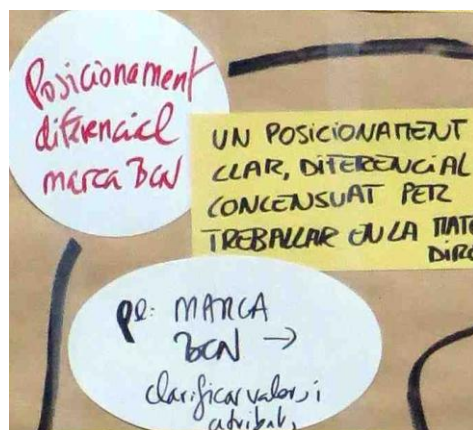 Posicionament
diferencial
marca BCN
UN POSICIONAMENT
CLAR, DIFERENCIAL
CONCENSUAT PER
TREBALLAR EN LA
pl: MARCA
BCN →
clarificar valors i
atributs